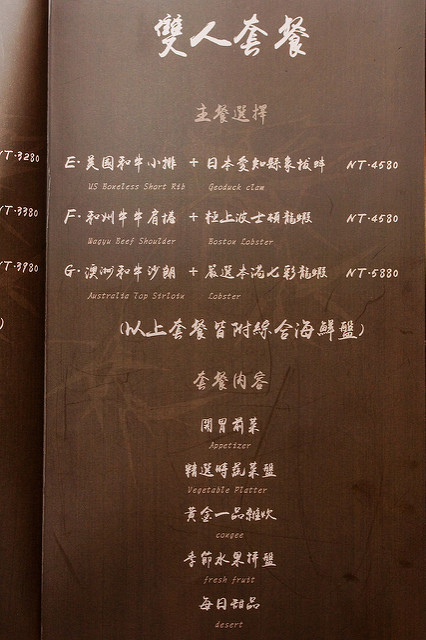 雙人套餐
主餐選擇
NT·3280
E·美國和牛小排 + 日本愛知縣象拔蚌 NT·4580
US Boneless Short Rib Geoduck clam
NT·3380
F·和州牛牛肩捲 + 極上波士頓龍蝦 NT·4580
Wagyu Beef Shoulder Boston Lobster
NT·3980
G·澳洲和牛沙朗 + 嚴選本港七彩龍蝦 NT·5880
Australia Top Sirloin Lobster
)
(以上套餐皆附綜合海鮮盤)
套餐內容
開胃前菜
Appetizer
精選時蔬菜盤
Vegetable Platter
黃金一品雜炊
congee
季節水果拼盤
fresh fruit
每日甜品
desert